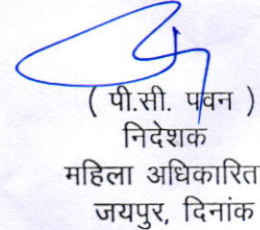 ( पी.सी. पवन )
निदेशक
महिला अधिकारित
जयपुर, दिनांक